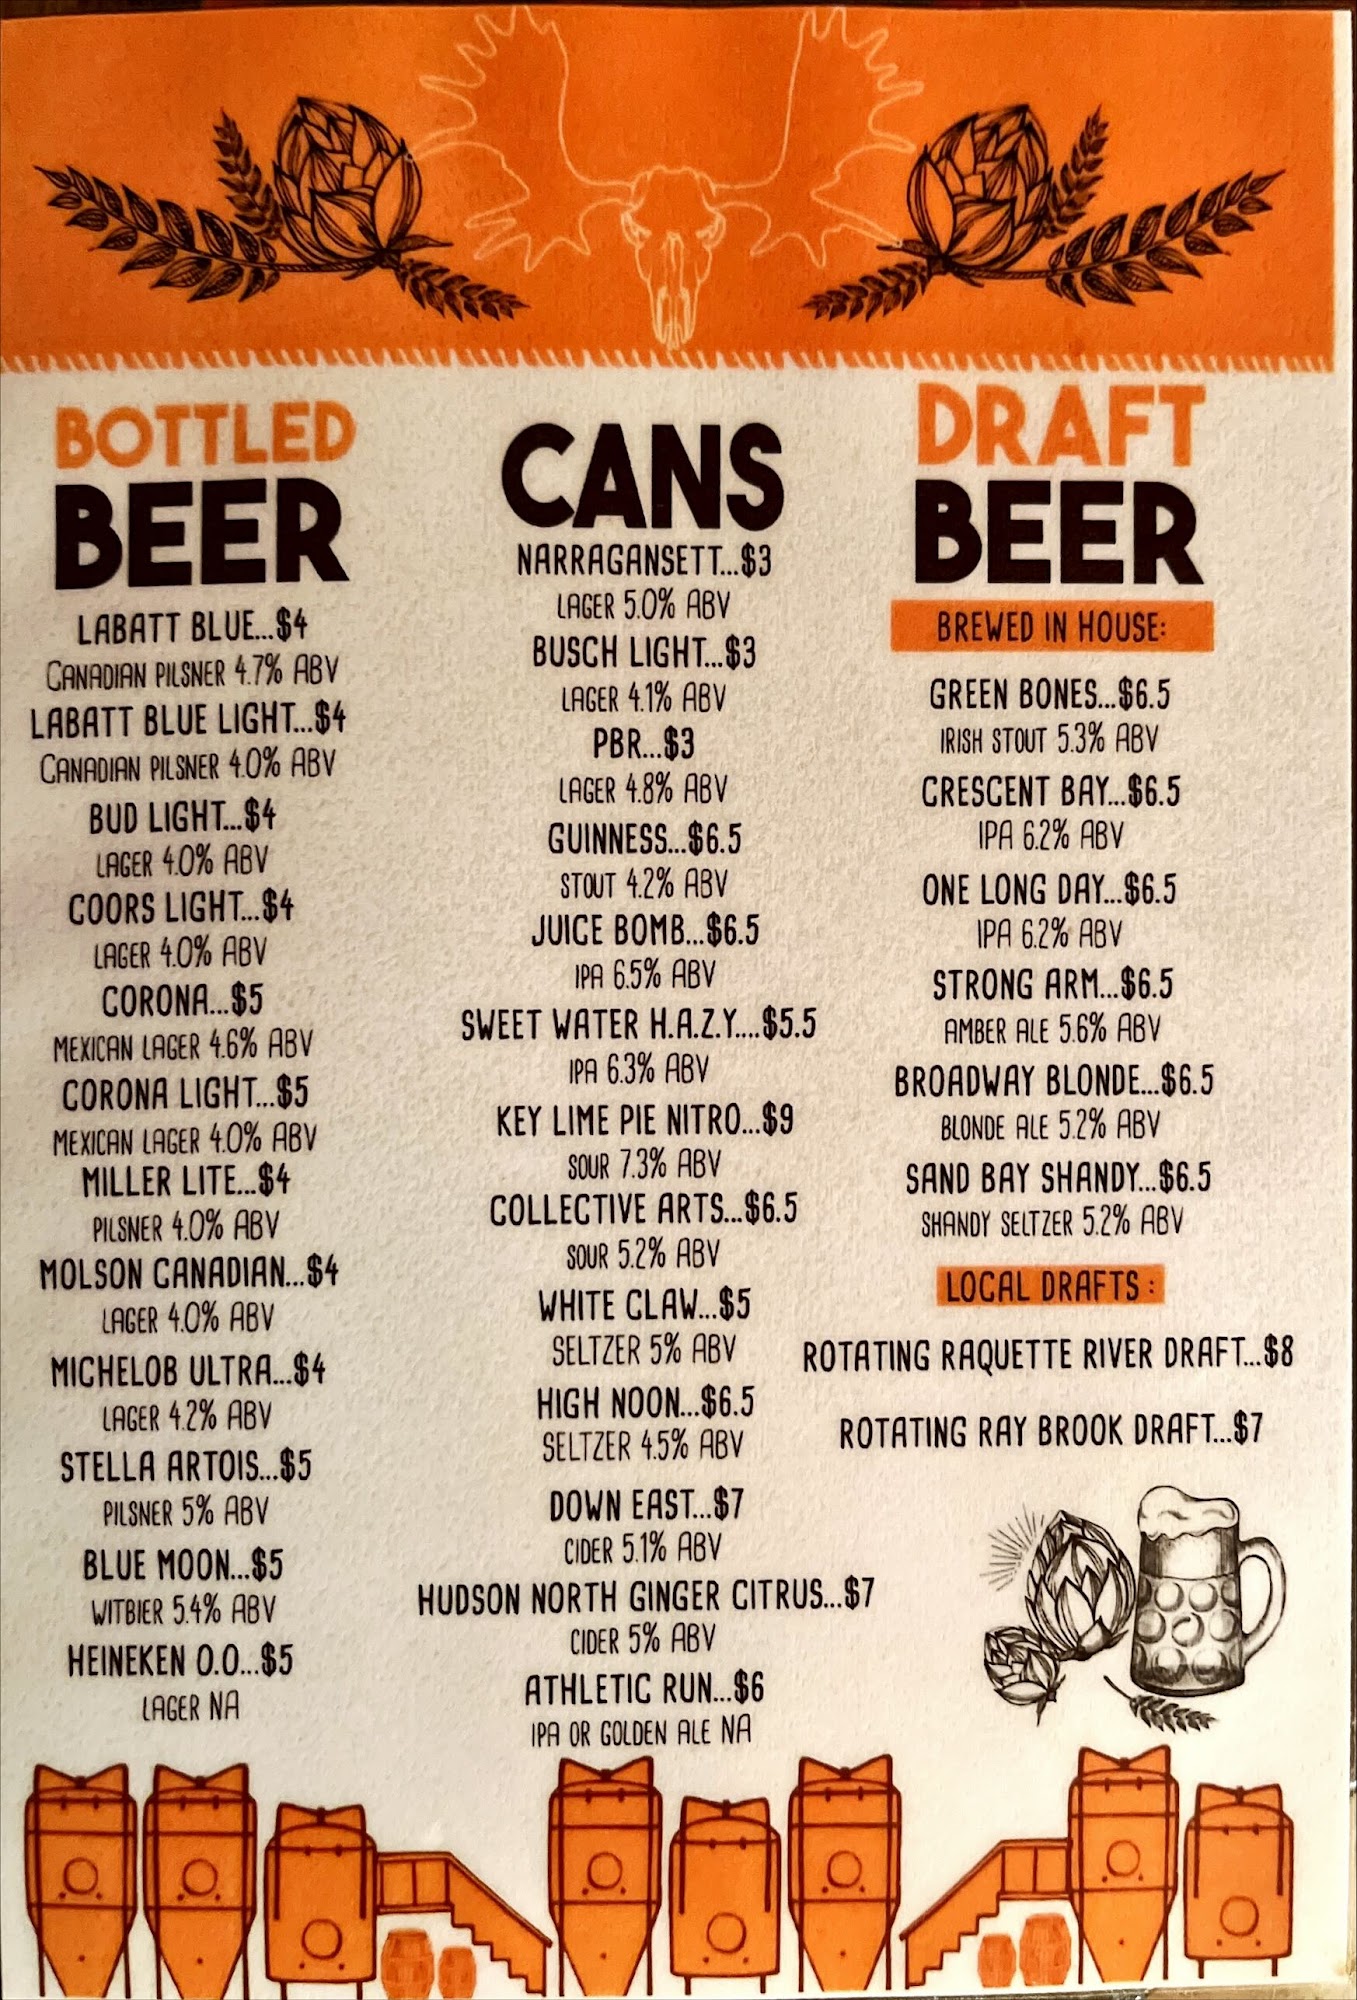 BOTTLED
BEER
LABATT BLUE...$4
CANADIAN PILSNER 4.7% ABV
LABATT BLUE LIGHT...$4
CANADIAN PILSNER 4.0% ABV
BUD LIGHT...$4
LAGER 4.0% ABV
COORS LIGHT...$4
LAGER 4.0% ABV
CORONA...$5
MEXICAN LAGER 4.6% ABV
CORONA LIGHT...$5
MEXICAN LAGER 4.0% ABV
MILLER LITE...$4
PILSNER 4.0% ABV
MOLSON CANADIAN...$4
LAGER 4.0% ABV
MICHELOB ULTRA...$4
LAGER 4.2% ABV
STELLA ARTOIS...$5
PILSNER 5% ABV
BLUE MOON...$5
WITBIER 5.4% ABV
HEINEKEN 0.0...$5
LAGER NA
CANS
NARRAGANSETT...$3
LAGER 5.0% ABV
BUSCH LIGHT...$3
LAGER 4.1% ABV
PBR...$3
LAGER 4.8% ABV
GUINNESS...$6.5
STOUT 4.2% ABV
JUICE BOMB...$6.5
IPA 6.5% ABV
SWEET WATER H.A.Z.Y....$5.5
IPA 6.3% ABV
KEY LIME PIE NITRO...$9
SOUR 7.3% ABV
COLLECTIVE ARTS...$6.5
SOUR 5.2% ABV
WHITE CLAW...$5
SELTZER 5% ABV
HIGH NOON...$6.5
SELTZER 4.5% ABV
DOWN EAST...$7
CIDER 5.1% ABV
HUDSON NORTH GINGER CITRUS...$7
CIDER 5% ABV
ATHLETIC RUN...$6
IPA OR GOLDEN ALE NA
DRAFT
BEER
BREWED IN HOUSE:
GREEN BONES...$6.5
IRISH STOUT 5.3% ABV
CRESCENT BAY...$6.5
IPA 6.2% ABV
ONE LONG DAY...$6.5
IPA 6.2% ABV
STRONG ARM...$6.5
AMBER ALE 5.6% ABV
BROADWAY BLONDE...$6.5
BLONDE ALE 5.2% ABV
SAND BAY SHANDY...$6.5
SHANDY SELTZER 5.2% ABV
LOCAL DRAFTS :
ROTATING RAQUETTE RIVER DRAFT...$8
ROTATING RAY BROOK DRAFT...$7